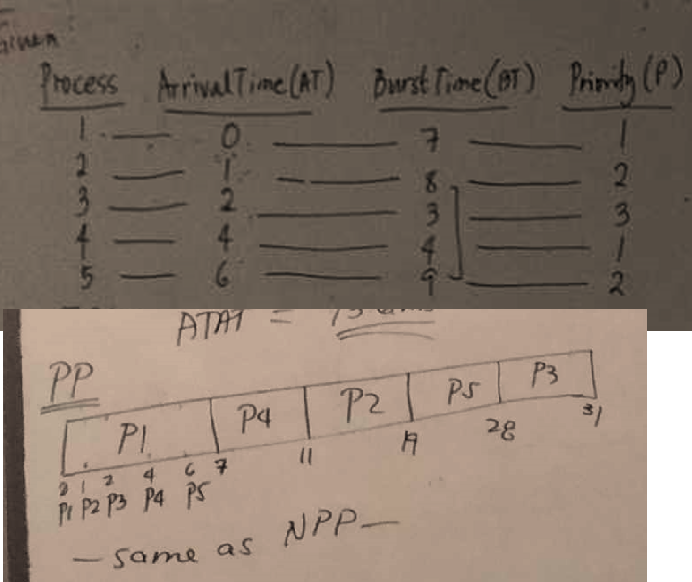 Given:
Process Arrival Time (AT) Burst Time (BT) Priority (P)
1 — 0 — 7 — 1
2 — 1 — 8 — 2
3 — 2 — 3 — 3
4 — 4 — 4 — 1
5 — 6 — 9 — 2
ATAT =
PP
P1 P4 P2 P5 P3
0 1 2 4 6 7 11 19 28 31
P1 P2 P3 P4 P5
— same as NPP —